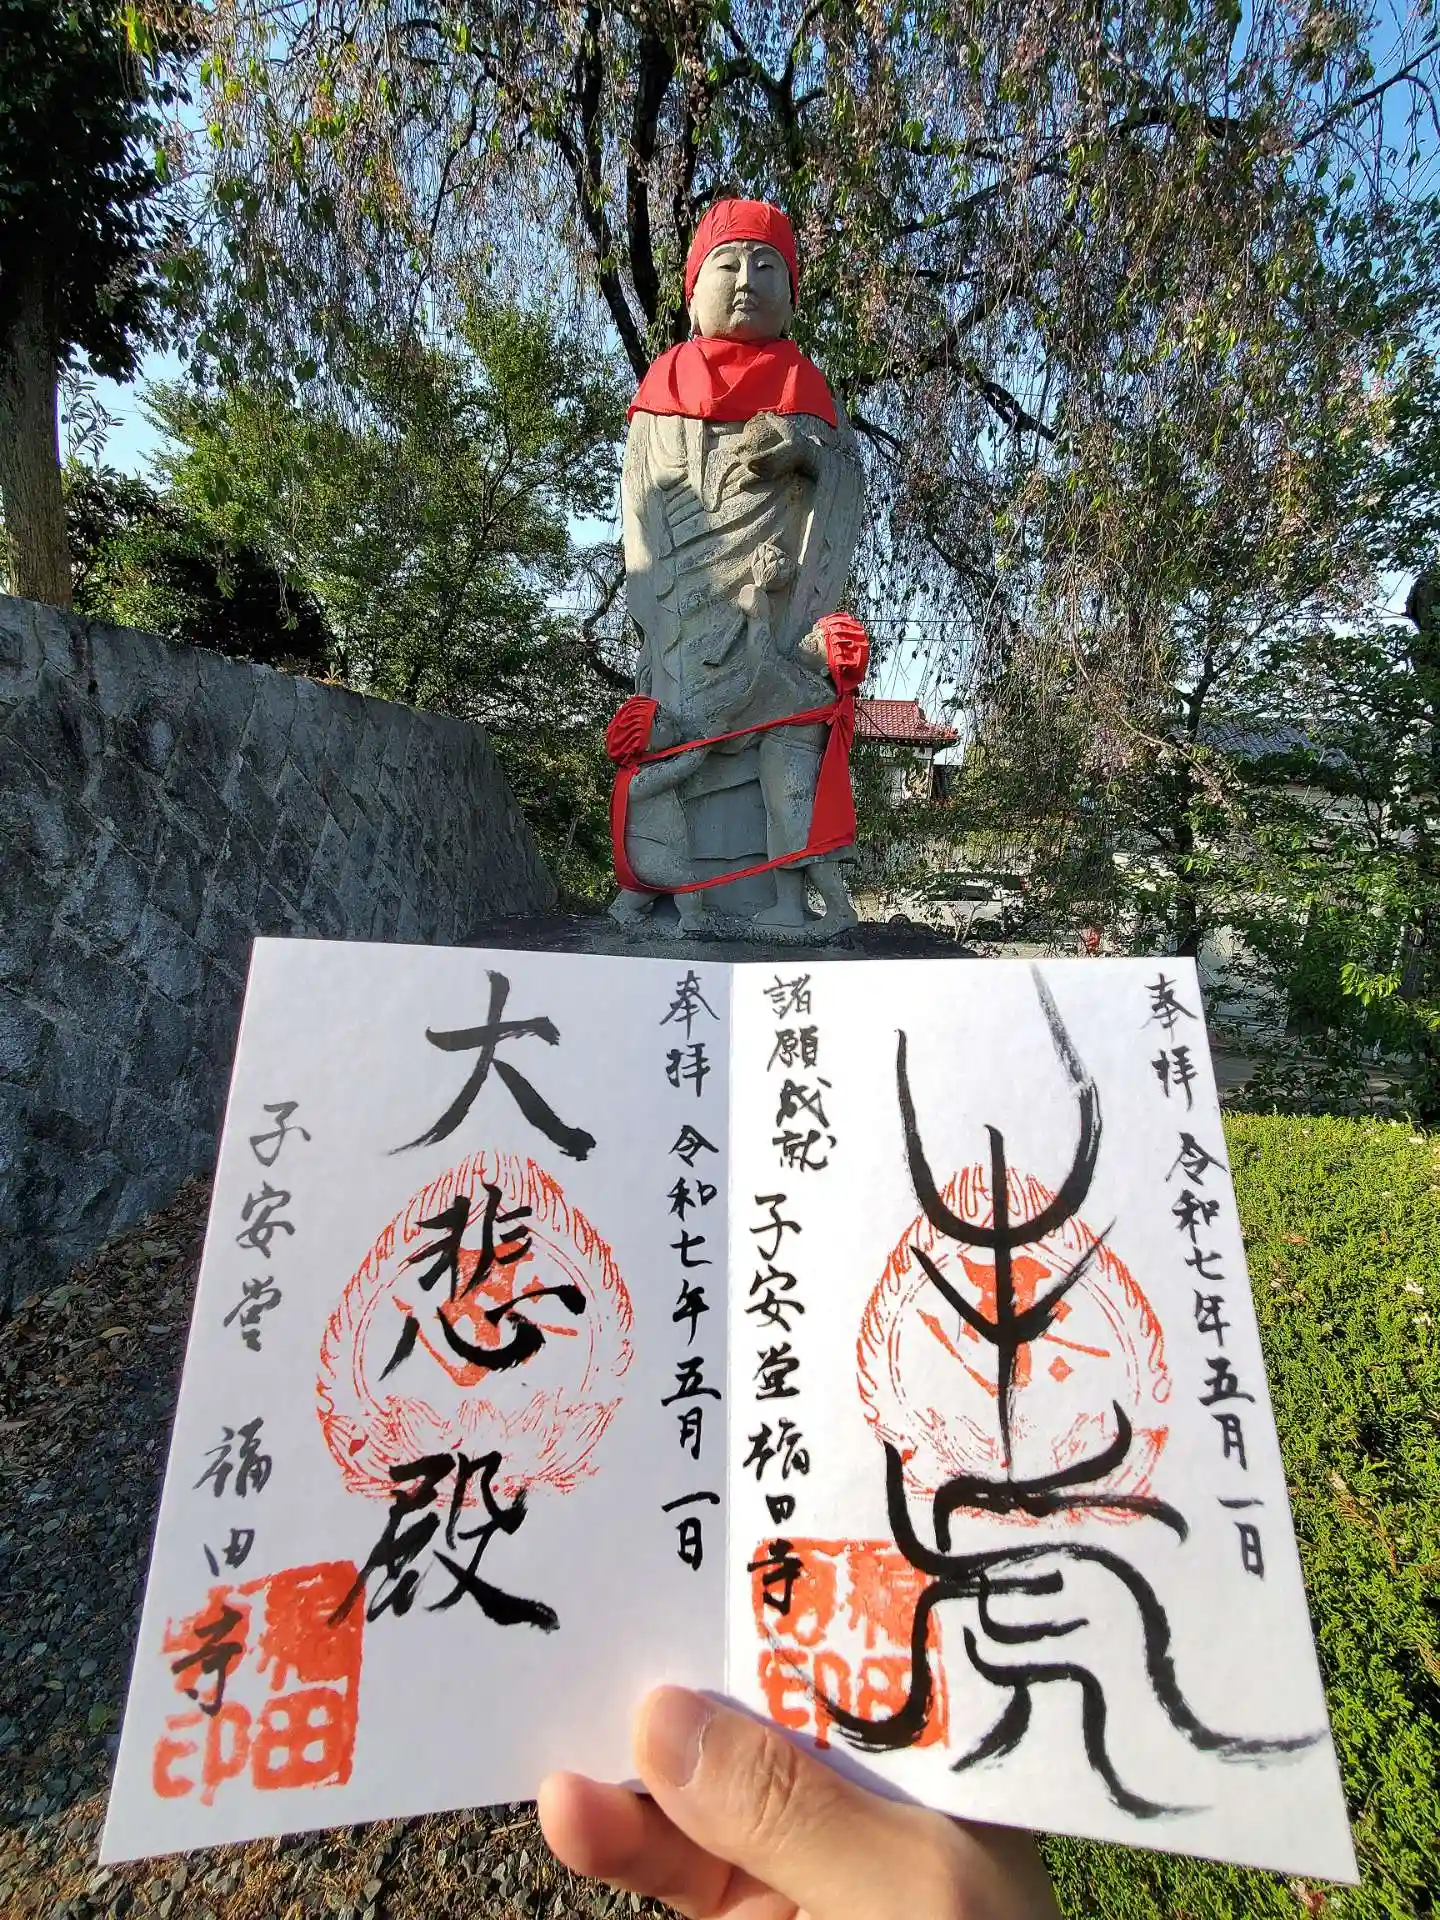 奉拝 令和七年五月一日
牛虎
諸願成就 子安堂 福田寺
福田寺印
奉拝 令和七年五月一日
大悲殿
子安堂 福田寺
福田寺印